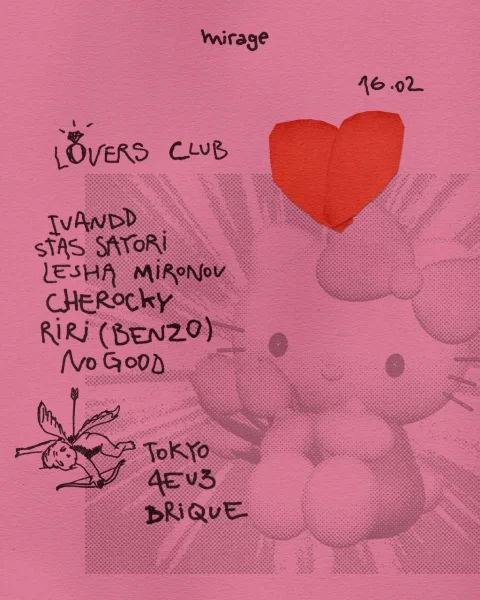 mirage
16.02
LOVERS CLUB
IVANDD
STAS SATORI
LESHA MIRONOV
CHEROCKY
RIRI (BENZO)
NO GOOD
TOKYO
4EU3
BRIQUE